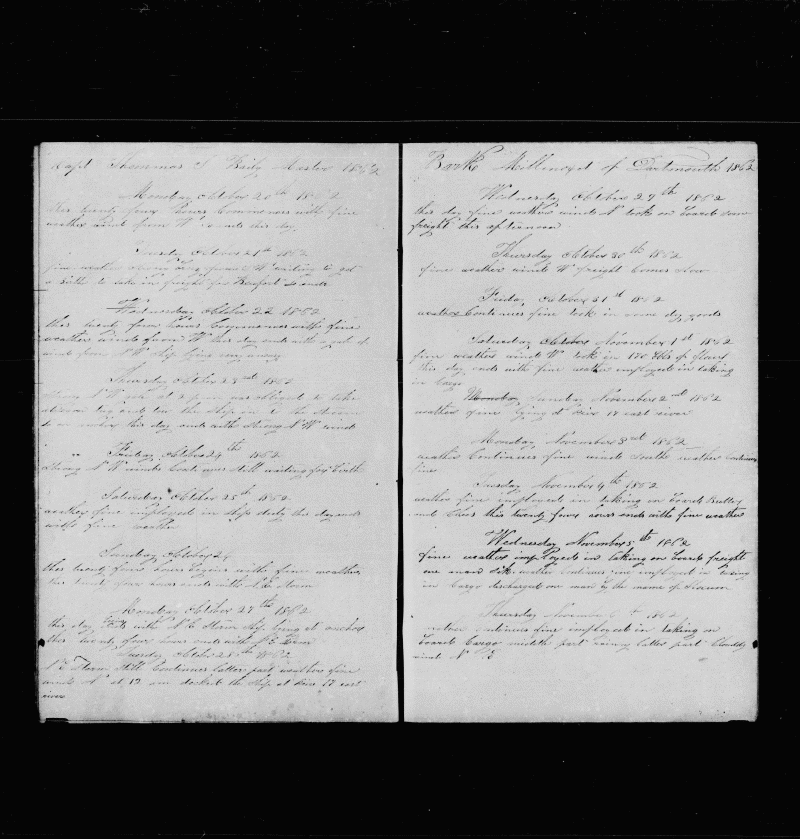 Capt Thommas S Baily Master 1862
Monday October 20th 1862
this twenty four hours Commences with fine
weather wind from W so ends this day
Tuesday October 21st 1862
fine weather wind from W waiting to get
a birth to take in freight for so ends
Wednesday October 22 1862
this twenty four hours Commences with fine
weather winds from W this day ends with a gale of
wind from NW ship lying
Thursday October 23 1862
Strong NW at 2 pm was obliged to take
the ship in the Stream
to an anchor this day ends with Strong NW winds
Friday October 24th 1862
Strong NW winds Continues still waiting for birth
Saturday October 25th 1862
weather fine employed in ships duty the day ends
with fine weather
Sunday October 26
this twenty four hours begins with fine weather
this twenty four hours ends with N.E. Storm
Monday October 27th 1862
this day with N.E. Storm ship laying at anchor
this twenty four hours ends with N.E. Storm
Tuesday October 28th 1862
N.E. Storm Still Continues latter part weather fine
winds N at 12 am docked the ship at Pier 17 east
river
Bark Millwood of Dartmouth 1862
Wednesday October 29th 1862
this day fine weather winds N took on board some
freight this afternoon
Thursday October 30th 1862
fine weather winds W freight Comes slow
Friday October 31st 1862
weather Continues fine took in some dry goods
Saturday October November 1st 1862
fine weather winds W took in 170 bbls of flour
this day ends with fine weather employed in taking
in Cargo
Monday Sunday November 2nd 1862
weather fine lying at Pier 17 east river
Monday November 3rd 1862
weather Continues fine winds South weather continues
fine
Tuesday November 4th 1862
weather fine employed in taking on board
and this twenty four hours ends with fine weather
Wednesday November 5th 1862
fine weather employed in taking on board freight
one man sick weather Continues fine employed in taking
in Cargo discharged one man by the name of
Thursday November 6th 1862
weather Continues fine employed in taking on
board Cargo middle part rainy latter part Cloudy
winds N E